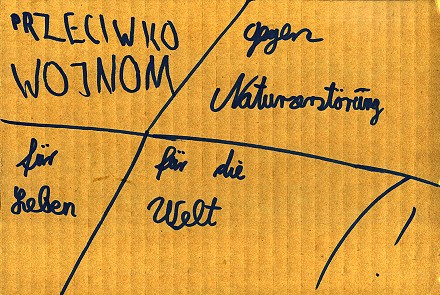 PRZECIWKO
WOJNOM
gegen
Naturzerstörung
für
Leben
für die
Welt
!